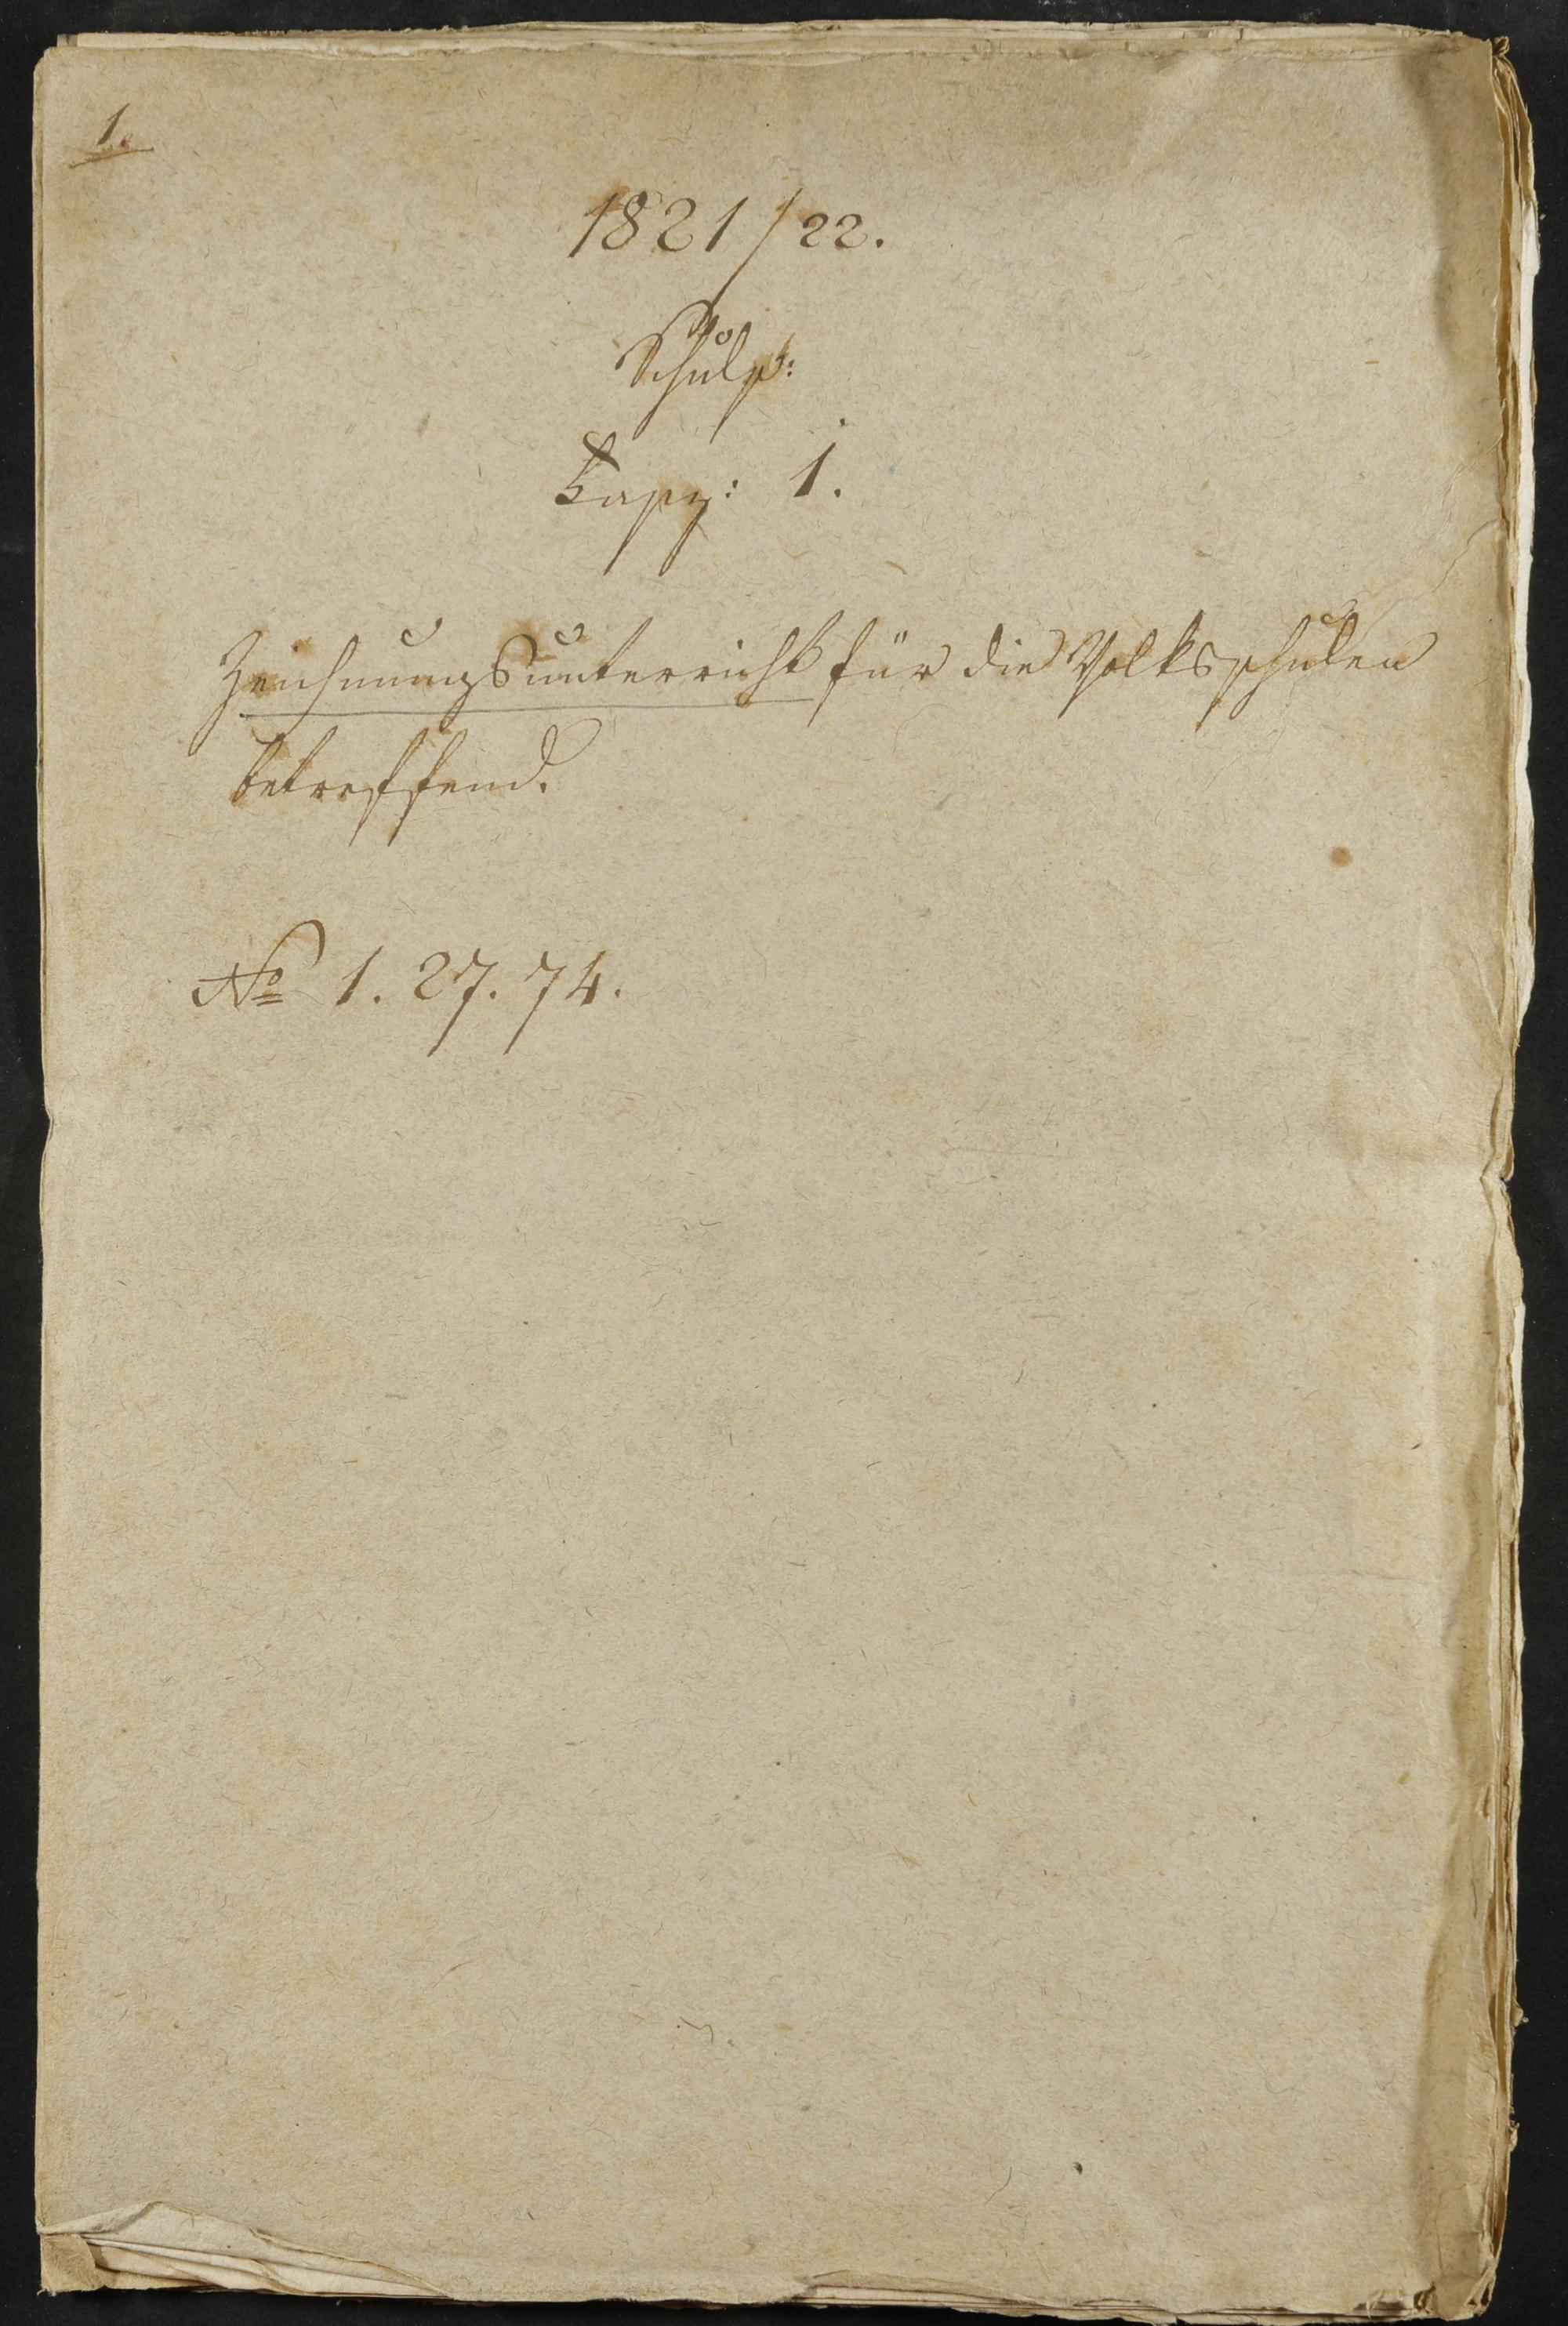 1.
1821/22.
Schulsp:
Fasz: 1.
Zeichnungsunterricht für die Volksschulen
betreffend.
No 1. 27. 74.